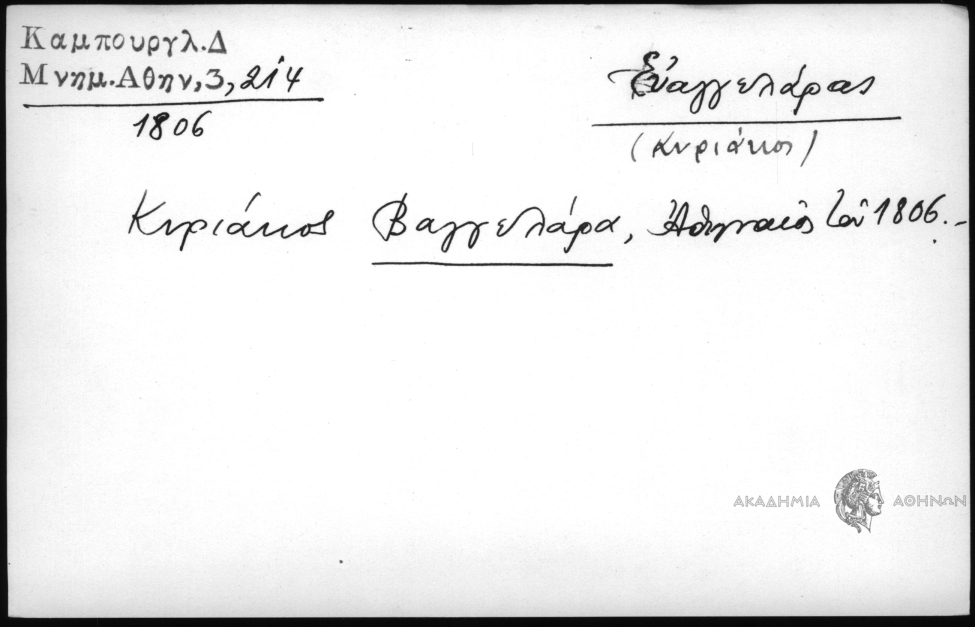 Καμπουργλ.Δ
Μνημ.Αθην,3,214
1806
Εὐαγγελάρας
(Κυριάκος)
Κυριάκος Βαγγελάρα, Ἀθηναῖος τοῦ 1806.-
ΑΚΑΔΗΜΙΑ ΑΘΗΝΩΝ